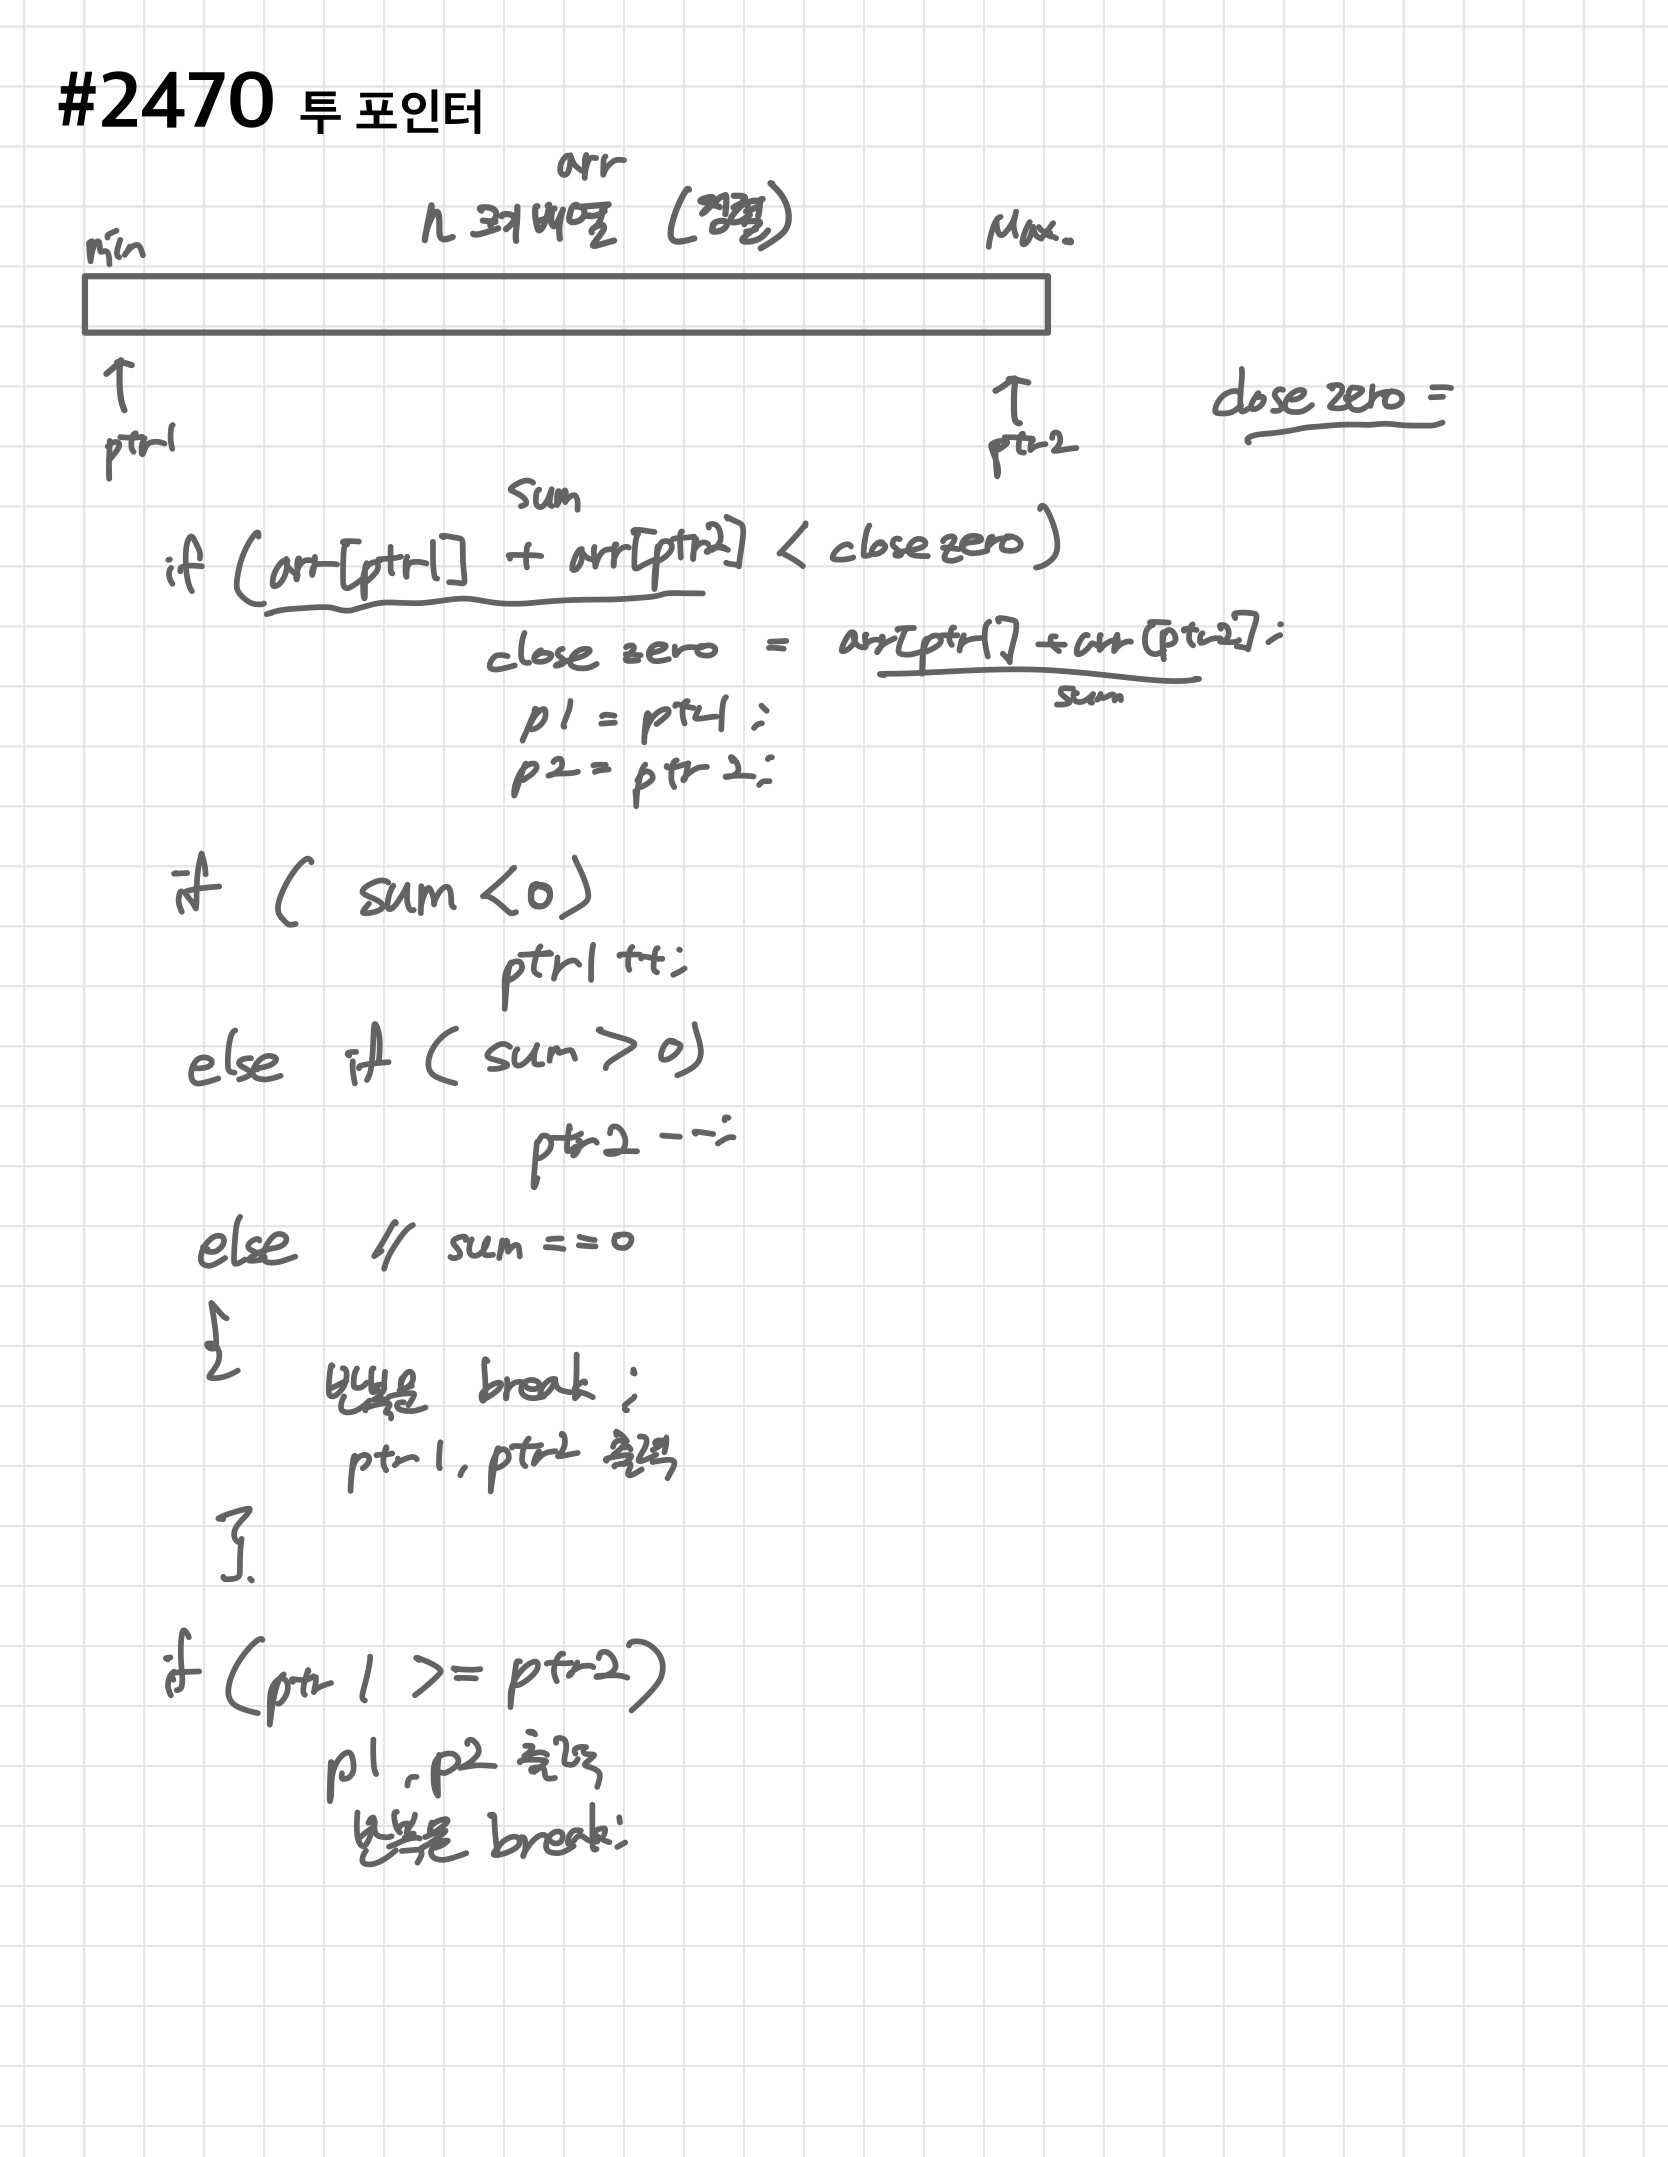 #2470 투 포인터
arr
n 크기 배열 (정렬)
min
Max.
ptr1
ptr2
close zero =
sum
if (arr[ptr1] + arr[ptr2] < close zero)
close zero = arr[ptr1] + arr[ptr2];
sum
p1 = ptr1;
p2 = ptr2;
if ( sum < 0)
ptr1 ++;
else if ( sum > 0)
ptr2 --;
else // sum == 0
{
반복문 break ;
ptr1, ptr2 출력
}.
if (ptr1 >= ptr2)
p1, p2 출력
반복문 break;